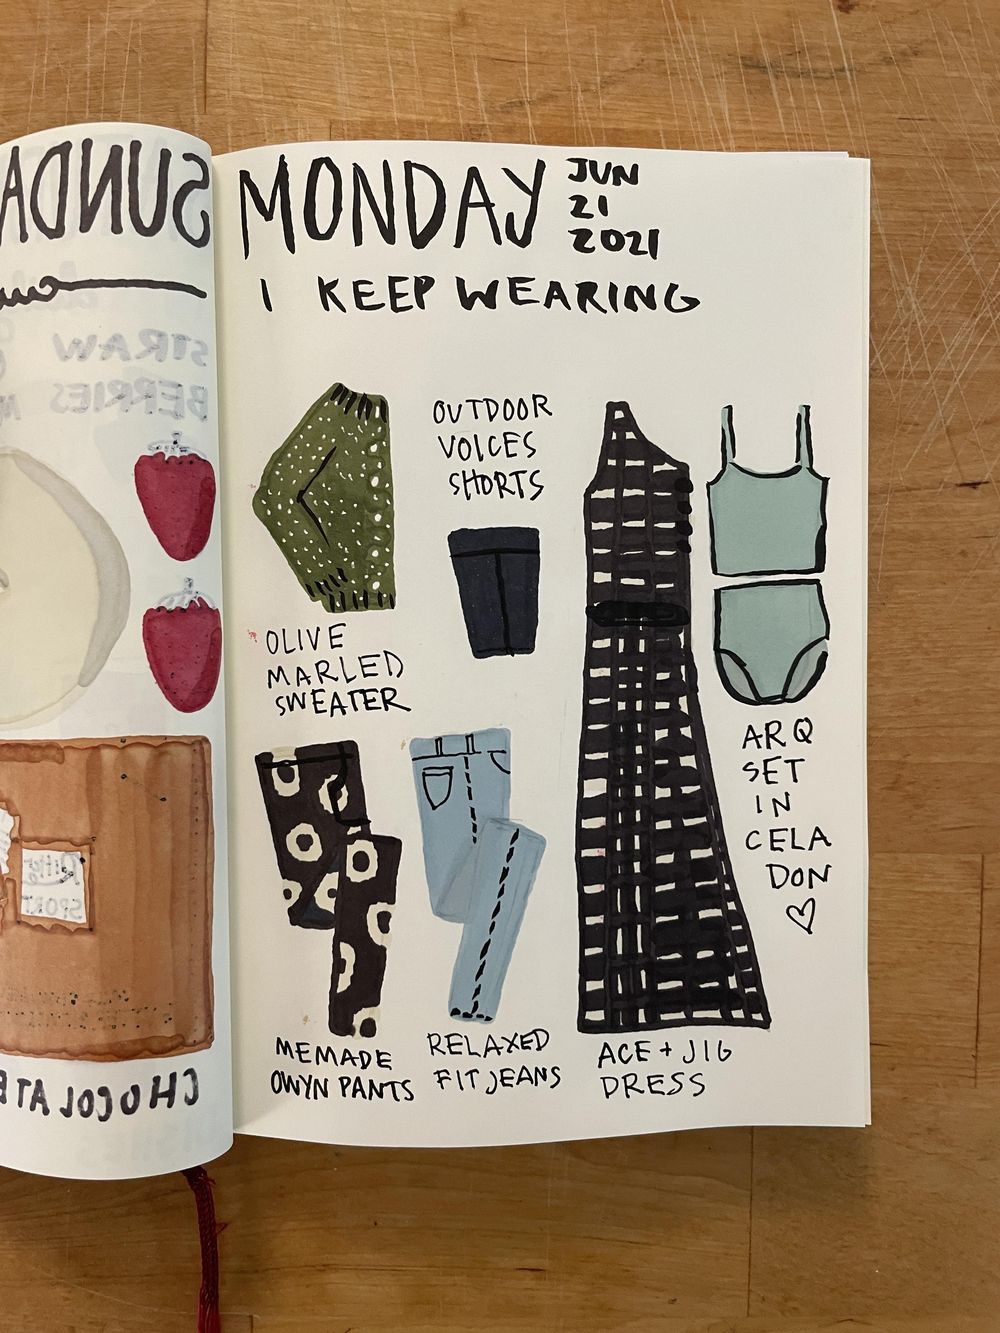 SUNDA
STRAW
BERRIES
Ritter
SPORT
CHOCOLATE
MONDAY
JUN
21
2021
I KEEP WEARING
OLIVE
MARLED
SWEATER
OUTDOOR
VOICES
SHORTS
ARQ
SET
IN
CELA
DON
MEMADE
OWYN PANTS
RELAXED
FIT JEANS
ACE + JIG
DRESS